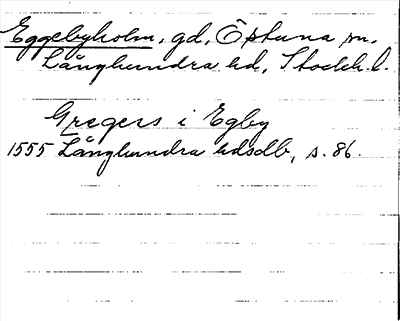 Eggebyholm, gd, Östuna sn.
Långhundra hd, Stockh. l.
Gregers i Egby
1555 Långhundra hdsdb, s. 86.